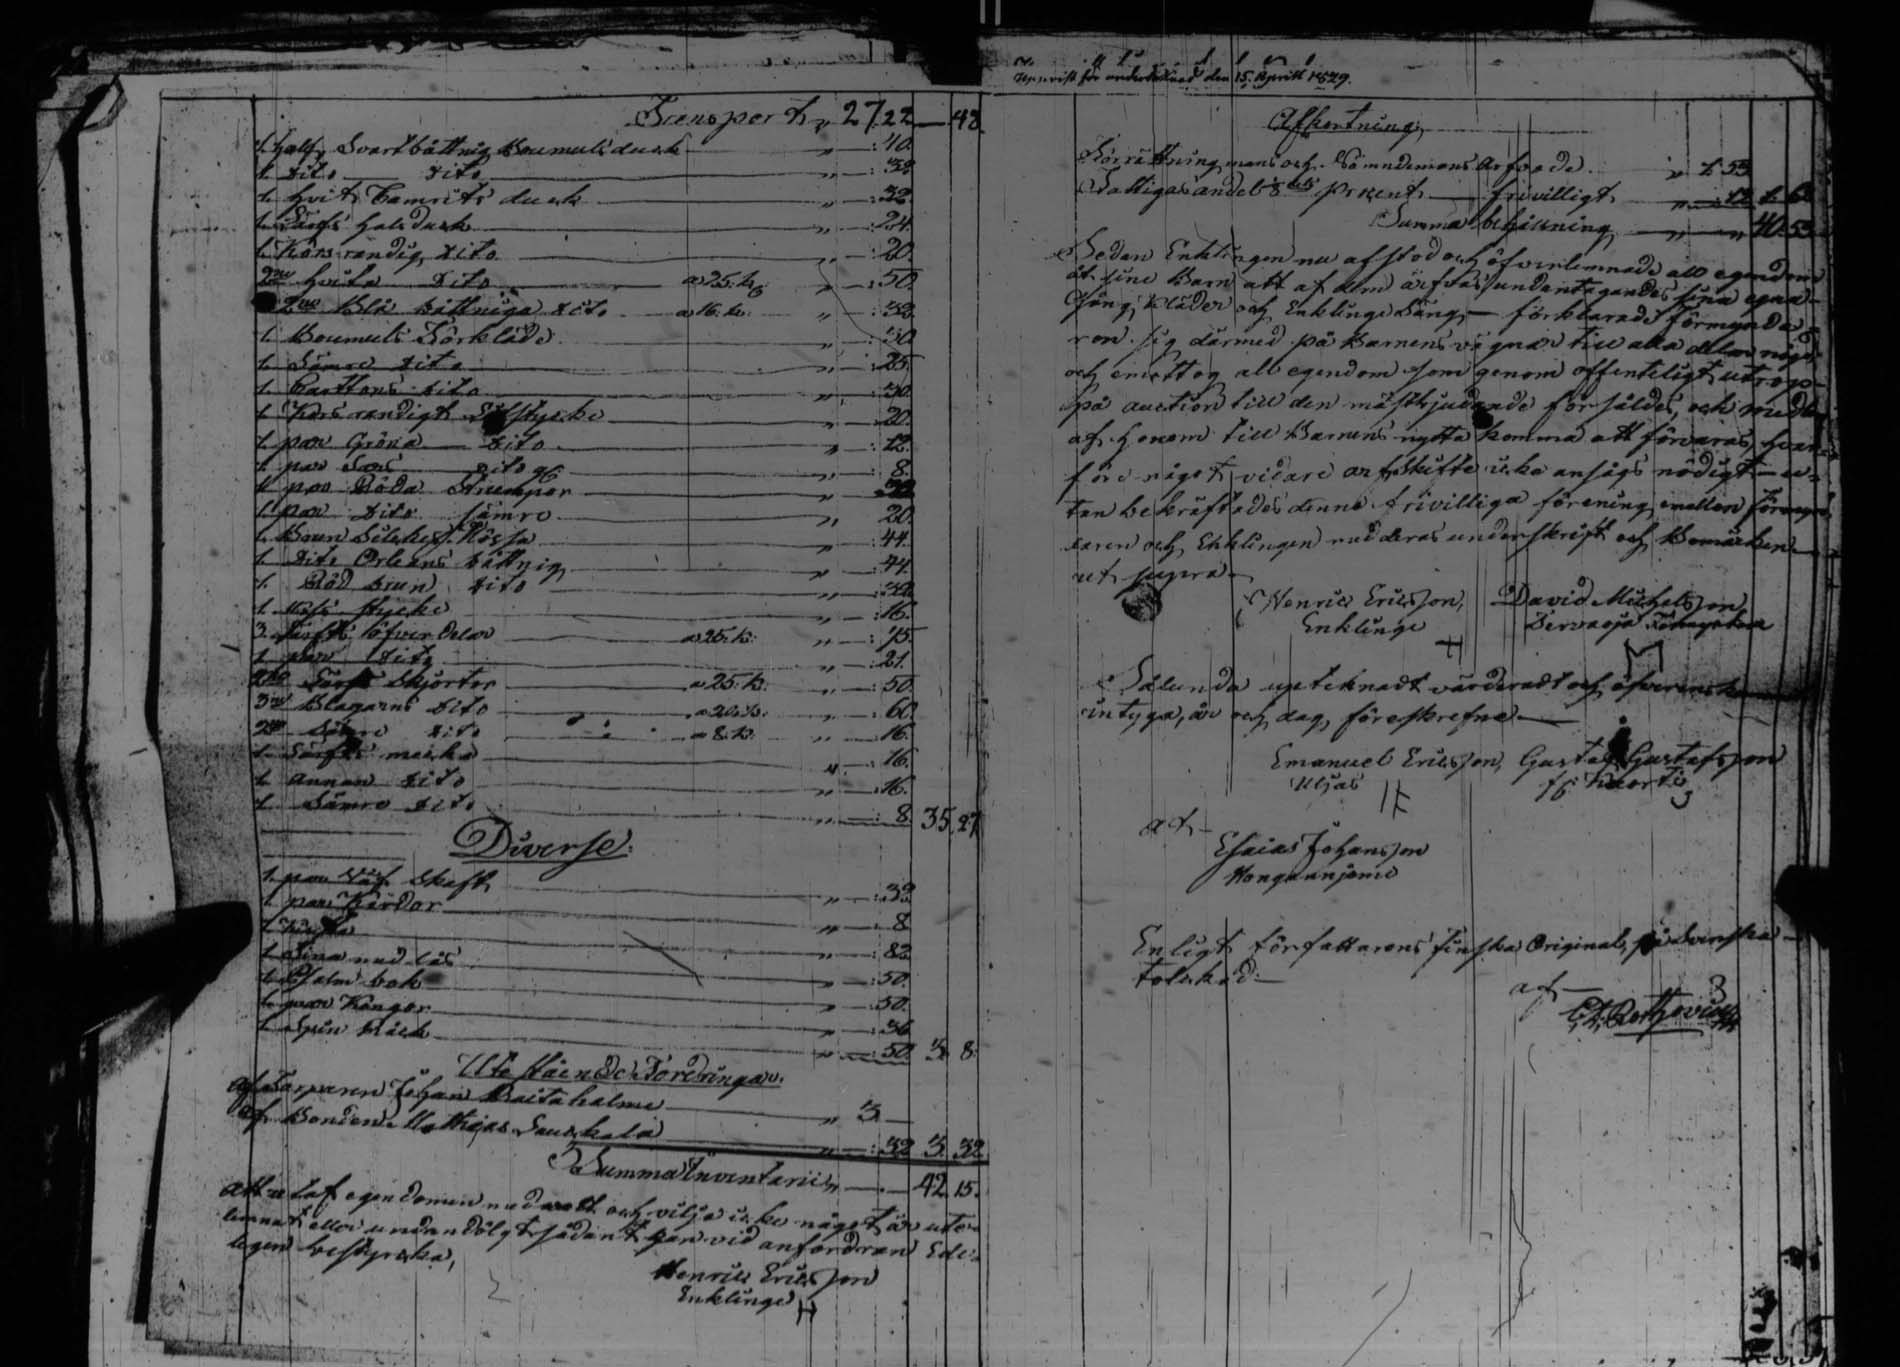 Transport " 27 22 — 48
1. half Svartbåttnig Boumulsduck " —: 40.
1. Dito Dito " —: 32
1. hvit Camrits duck " —: 32.
1. Lärfts halsduck " —: 24.
1. Kors randig Dito " —: 20.
2ne hvita Dito a 25. k. " —: 50
2ne Blå båttniga Dito a 16. k. " —: 32.
1. Boumuls Förkläde " —: 30
1. Sämre Dito " —: 25.
1. Carttons Dito " —: 30.
1. Kors randigt Lifstycke 20.
1. par Gröna Dito " —: 12.
1. par Dito " —: 8.
1. par Röda Strumpor " —: 32
1. par Dito sämre " 20.
1. Brun Silkes Mössa " —: 44.
1. Dito Orleans båttnig " —: 44.
1. Röd brun Dito " —: 32
1. stycke " —: 16.
3. Lärfts öfver Delar a 25. k. " —: 75.
1. par Dito " —: 21.
2ne Lärfts Skjortor a 25. k. " —: 50.
3ne Blagarns Dito a 20. k. " —: 60
2ne Sämre Dito a 8. k. " —: 16.
1. Lärfts " —: 16.
1. annan Dito " —: 16.
1. Sämre Dito " —: 8. 35. 27
Diverse.
1. par Väf Skeft " —: 32
1. par Kardor " —: 8
1. Kista " —: 82
1. med lås " —: 50.
1. Psalm bok " —: 50.
1. par Kängor " —: 36
1. Spin Råck " —: 50. 3. 8.
Utestående Fordringar.
af Torparen Johan Raitaholme " 3. —
af Bonden Mathias " —: 32 3. 32
Summa Inventarii " — 42. 15.
Att utaf egendomen med vett och vilja icke något är ute-
lemnat eller undandölgt, sådant kan vid anfordran Ede-
ligen bestyrcka,
Henric Ericsson
Enklinge
Upprist för undertecknad den 15. Aprill 1829.
Afkortning,
Förrättningsmans och Nämndemans Arfvode " 1: 53
Fattigas andel prcent — frivilligt " —: 12 1. 65
Summa behållning " — " 40: 53
Sedan Enklingen nu afstod och öfverlemnade all egendom
åt sine Barn att af dem ärfvas, undantagandes sina egna
Gång Kläder och Enklinge Säng, — förklarade Förmynda-
ren sig därmed på Barnens vägnar till alla delar nöjd,
och emottog all egendom som genom offenteligt utrop
på auction till den mästbjudande försåldes, och
af honom till Barnens nytta komma att förvaras, hvar-
före något vidare arfskifte icke ansågs nödigt — u-
tan bekräftades denne frivilliga förening emellan Förmyn-
daren och Enklingen med deras underskrift och Bomärken
ut supra —
Henric Ericsson,
Enklinge
David Michelsson
Förmyndare
Sålunda upteknadt värderadt och öfverens
intyga, år och dag, föreskrefne —
Emanuel Ericsson,
Gustaf Gustafsson
at —
Esaias Johansson
Enligt författarens Finska Original, på Svenska
tolckad —
at —